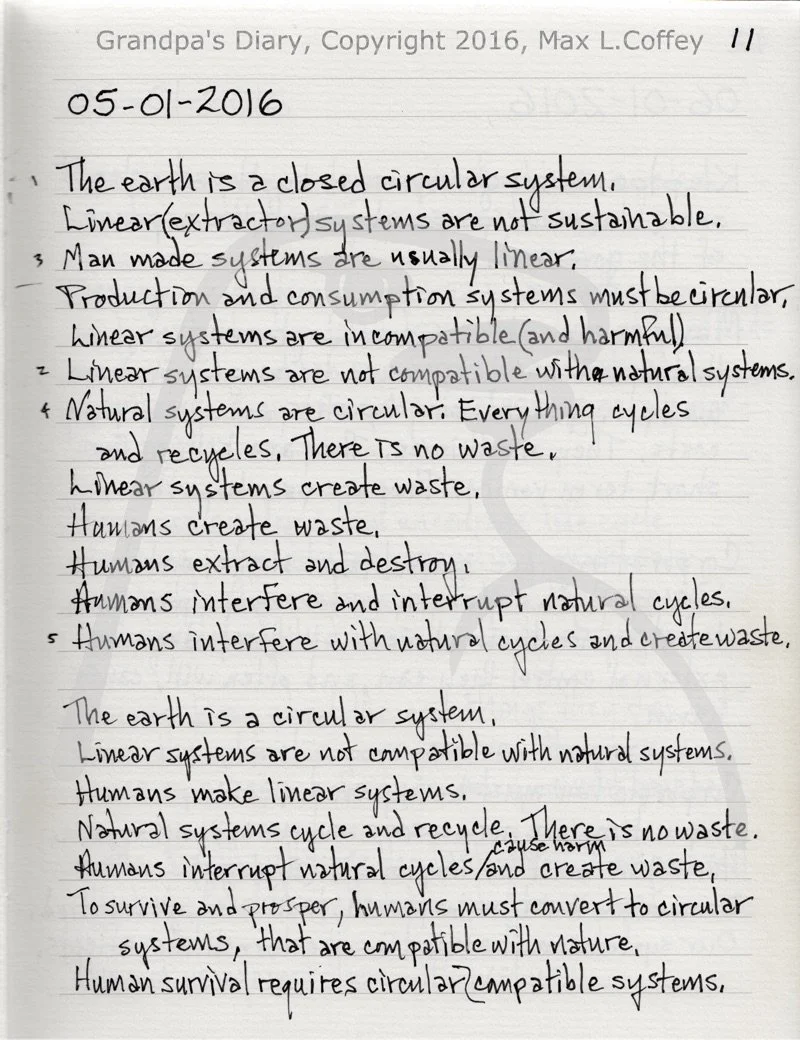 Grandpa's Diary, Copyright 2016, Max L.Coffey 11
05-01-2016
1 The earth is a closed circular system.
Linear (extractor) systems are not sustainable.
3 Man made systems are usually linear.
Production and consumption systems must be circular.
Linear systems are incompatible (and harmful)
2 Linear systems are not compatible with natural systems.
4 Natural systems are circular. Everything cycles
and recycles. There is no waste.
Linear systems create waste.
Humans create waste.
Humans extract and destroy.
Humans interfere and interrupt natural cycles.
5 Humans interfere with natural cycles and create waste.
The earth is a circular system.
Linear systems are not compatible with natural systems.
Humans make linear systems.
Natural systems cycle and recycle. There is no waste.
cause harm
Humans interrupt natural cycles/and create waste.
To survive and prosper, humans must convert to circular
systems, that are compatible with nature.
Human survival requires circular compatible systems.